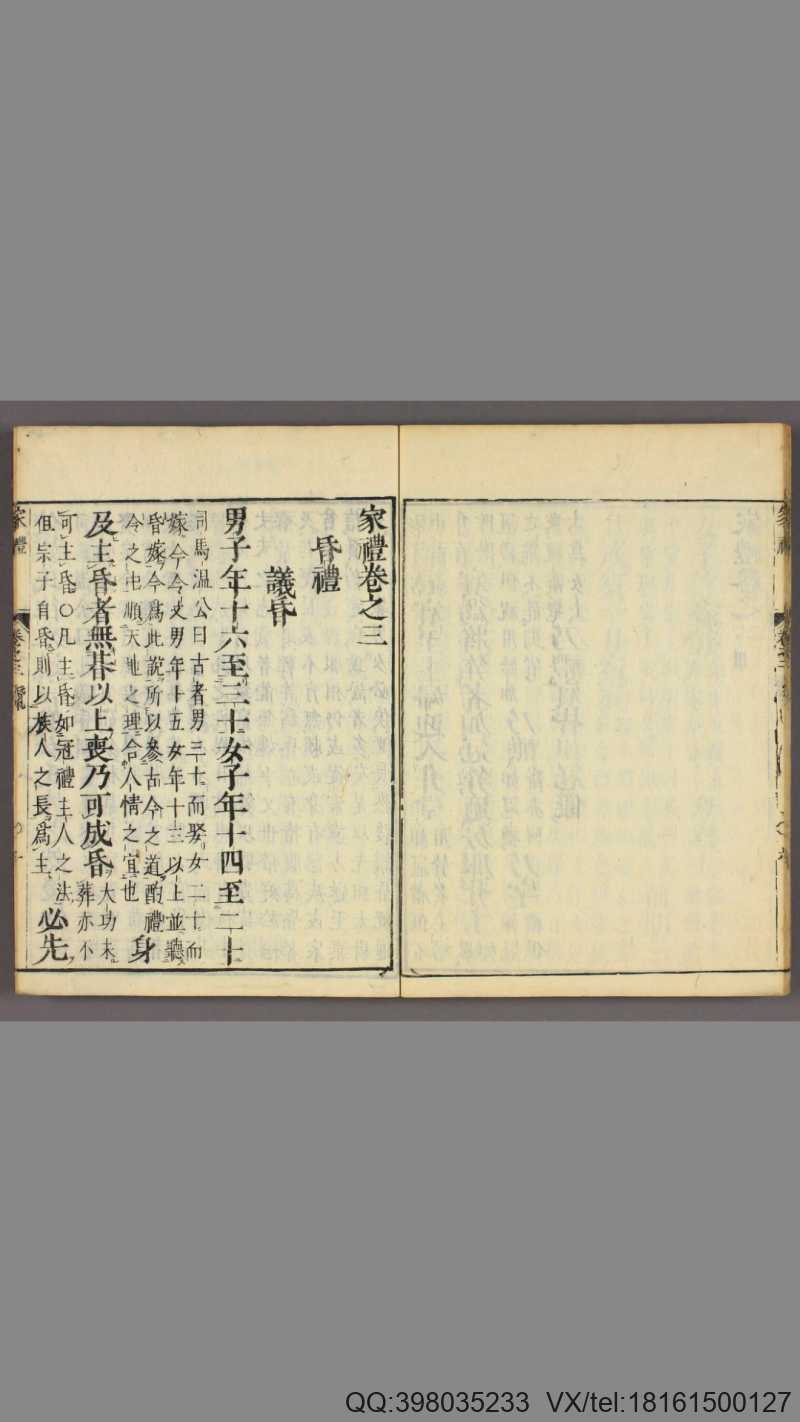 家禮卷之三
昏禮
議昏
男子年十六至三十女子年十四至二十
司馬溫公曰古者男三十而娶女二十而
嫁今令文男年十五女年十三以上並聽
昏嫁今爲此說所以參古今之道酌禮
令之中順天地之理合人情之宜也
身
及主昏者無朞以上喪乃可成昏
大功未
葬亦不
可主昏○凡主昏如冠禮主人之法
但宗子自昏則以族人之長爲主
必先
家禮
卷之三
QQ:398035233 VX/tel:18161500127